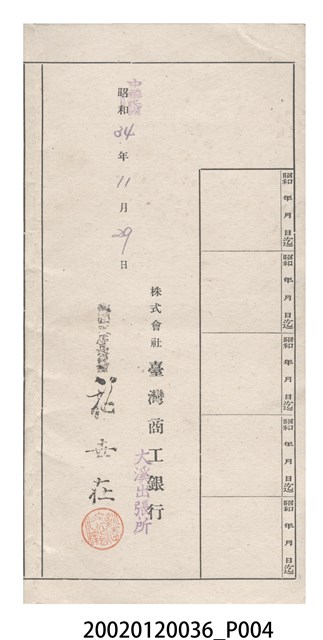 昭和 年 月 日迄
昭和 年 月 日迄
昭和 年 月 日迄
昭和 年 月 日迄
昭和 年 月 日迄
株式會社 臺灣商工銀行
大溪出張所
昭和 34 年 11 月 29 日
20020120036_P004